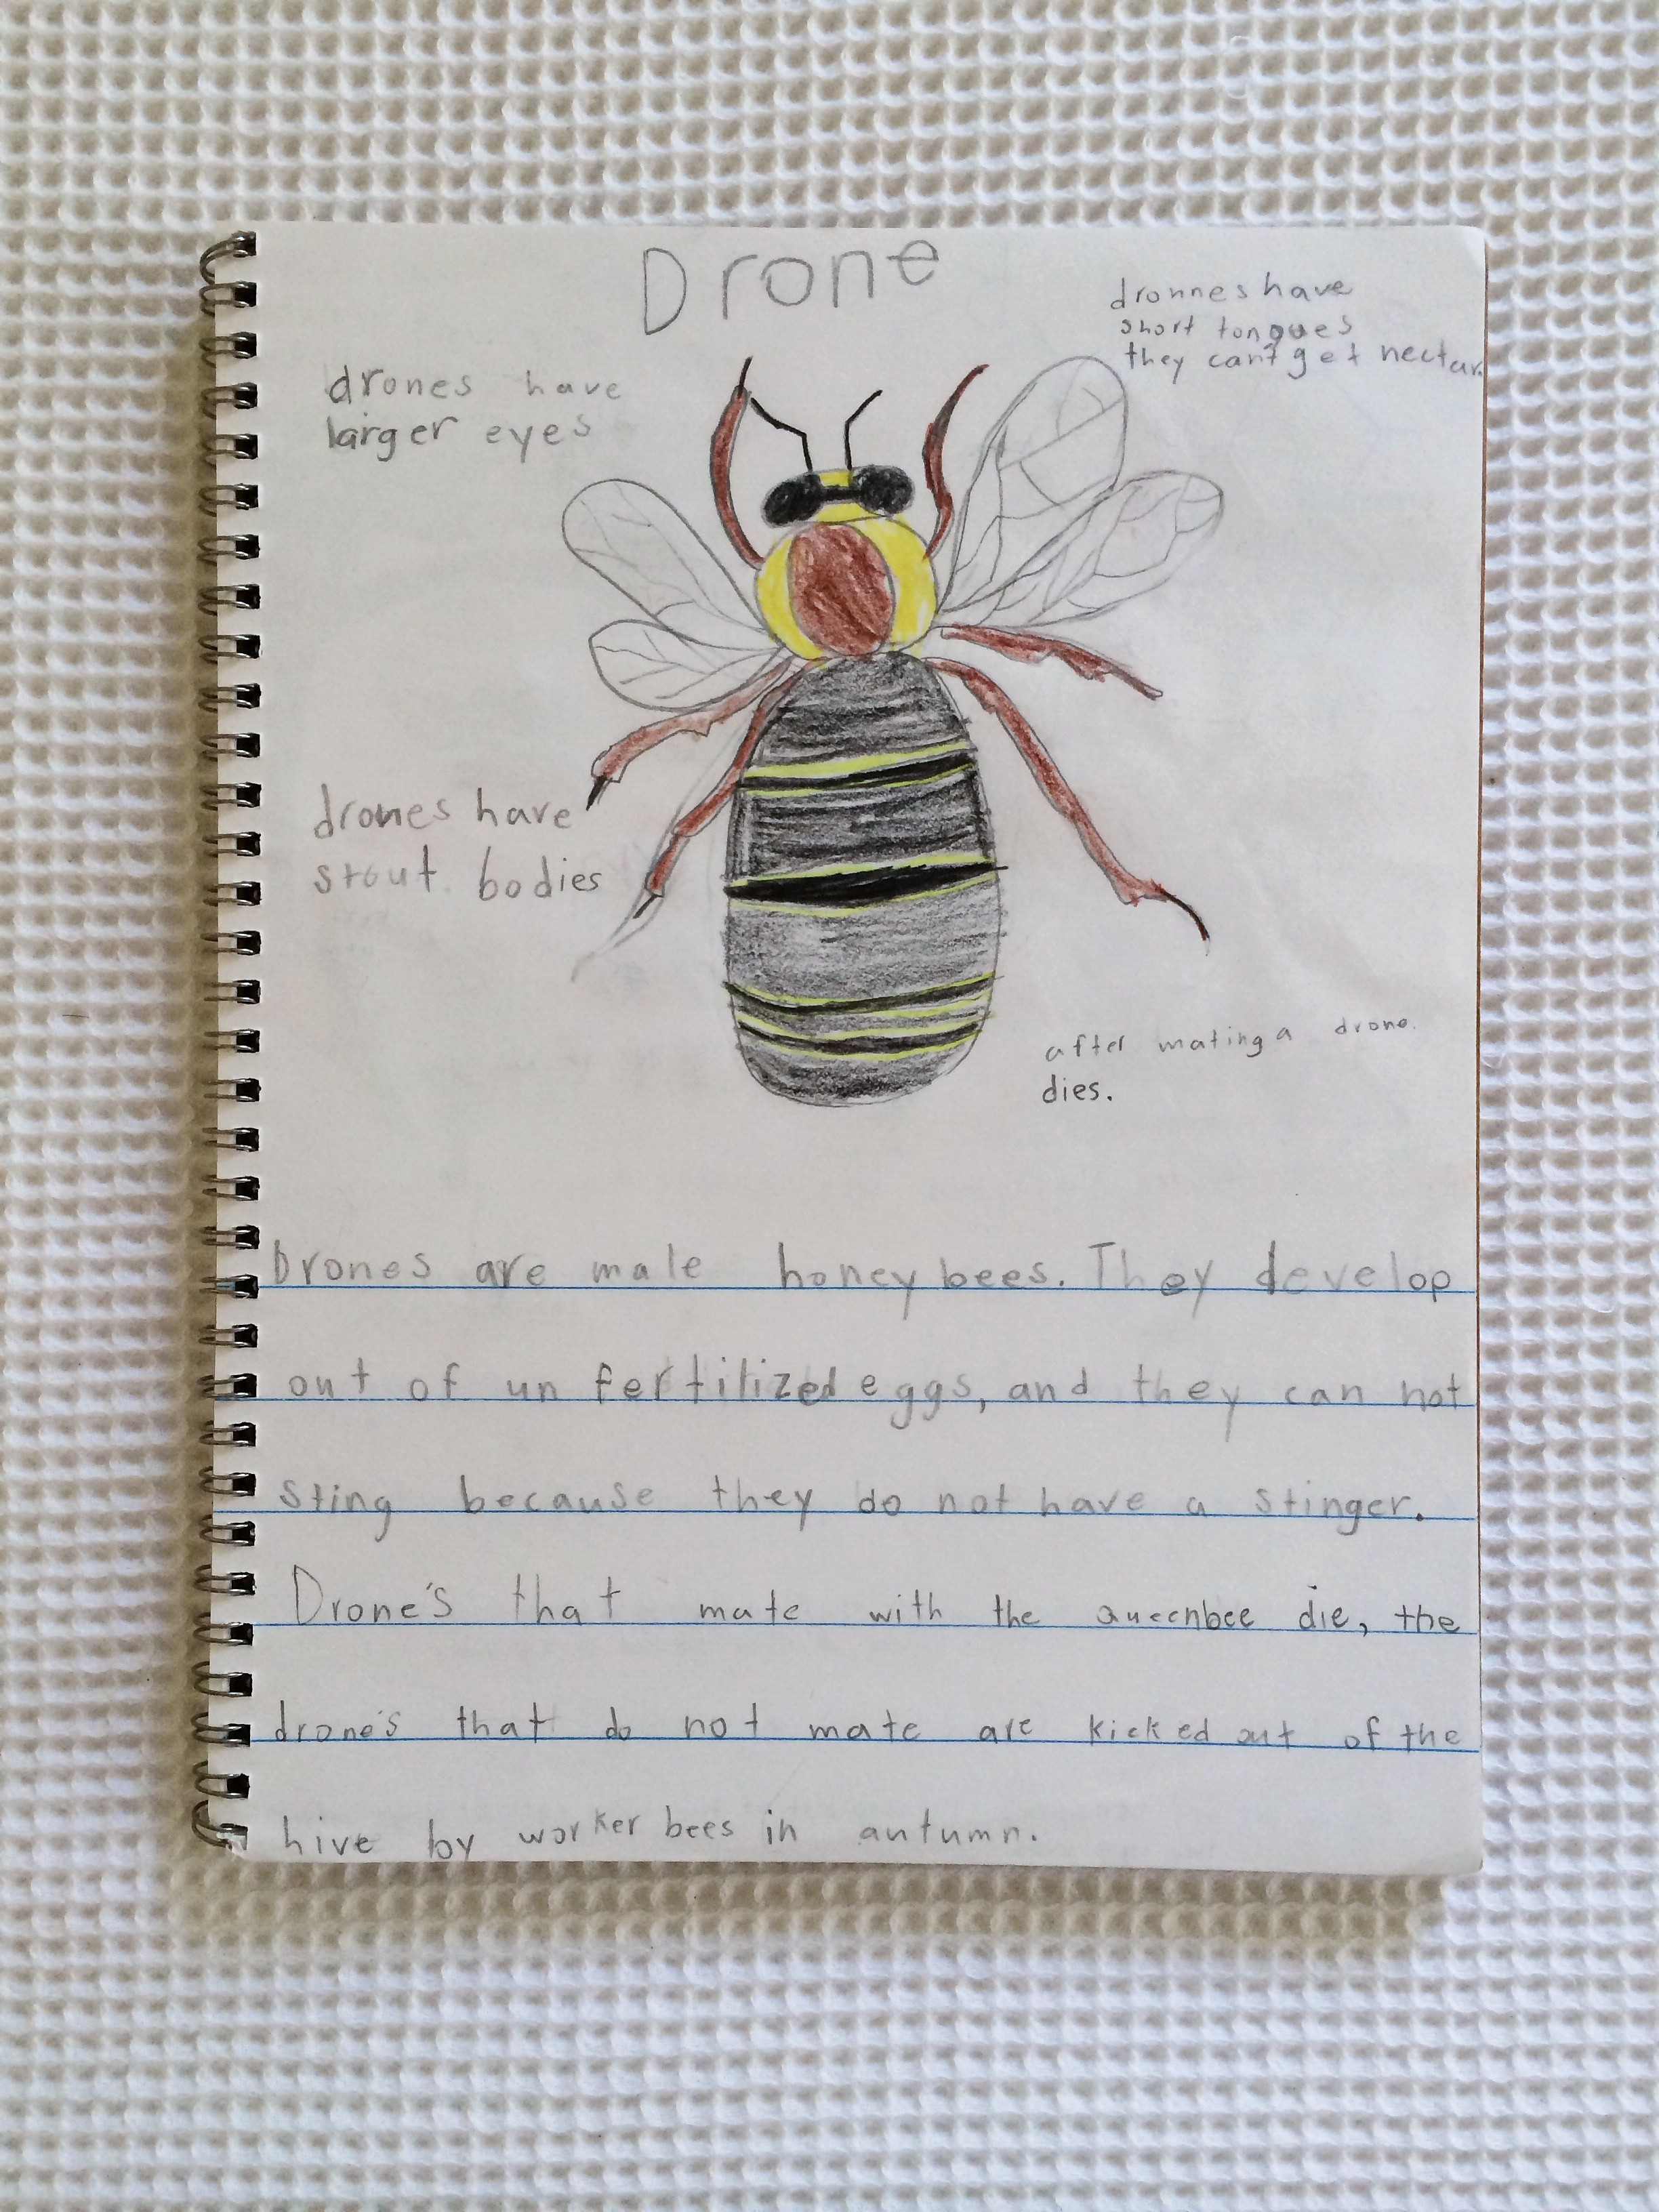 Drone
dronnes have
short tongues
they can't get nectar.
drones have
larger eyes
drones have
stout bodies
after mating a drone
dies.
Drones are male honey bees. They develop
out of un fertilized eggs, and they can not
sting because they do not have a stinger.
Drone's that mate with the queenbee die, the
drone's that do not mate are kicked out of the
hive by worker bees in autumn.